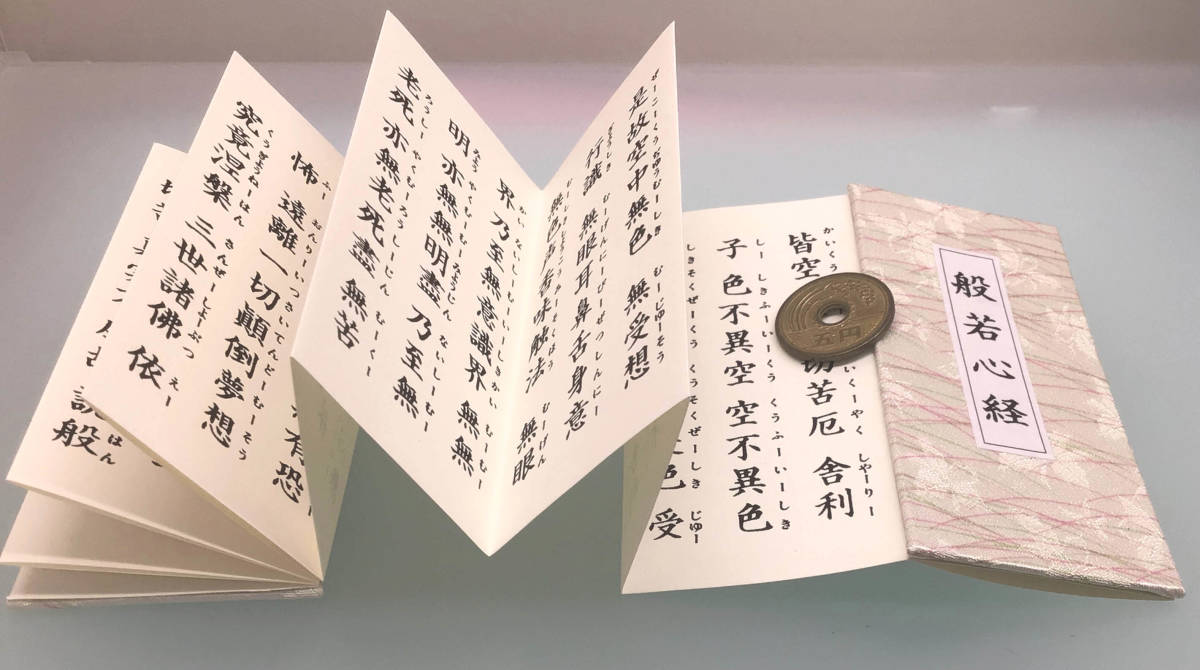 般若心経
五円
かいくう いくーやく しゃーりー
皆空 切苦厄 舎利
しー しきふーいーくう くうふーいーしき
子 色不異空 空不異色
しきそくぜーくう くうそくぜーしき じゅー
色 受
ぜーこーくうちゅうむーしき むーじゅーそう
是故空中無色 無受想
ぎょうしき むーげんにーびーぜっしんにー
行識 無眼耳鼻舌身意
むーげん
香味触法 無眼
かい ないしーむーいーしきかい むーむー
界 乃至無意識界 無無
みょうやくむーむーみょうじん ないしーむー
明 亦無無明盡 乃至無
ろうしー やくむーろうしーじん むーくー
老死 亦無老死盡 無苦
有恐
ふー おんりーいっさいてんどーむーそう
怖 遠離一切顛倒夢想
くうぎょうねーはん さんぜーしょーぶつ えー
究竟涅槃 三世諸佛 依
はん
説般